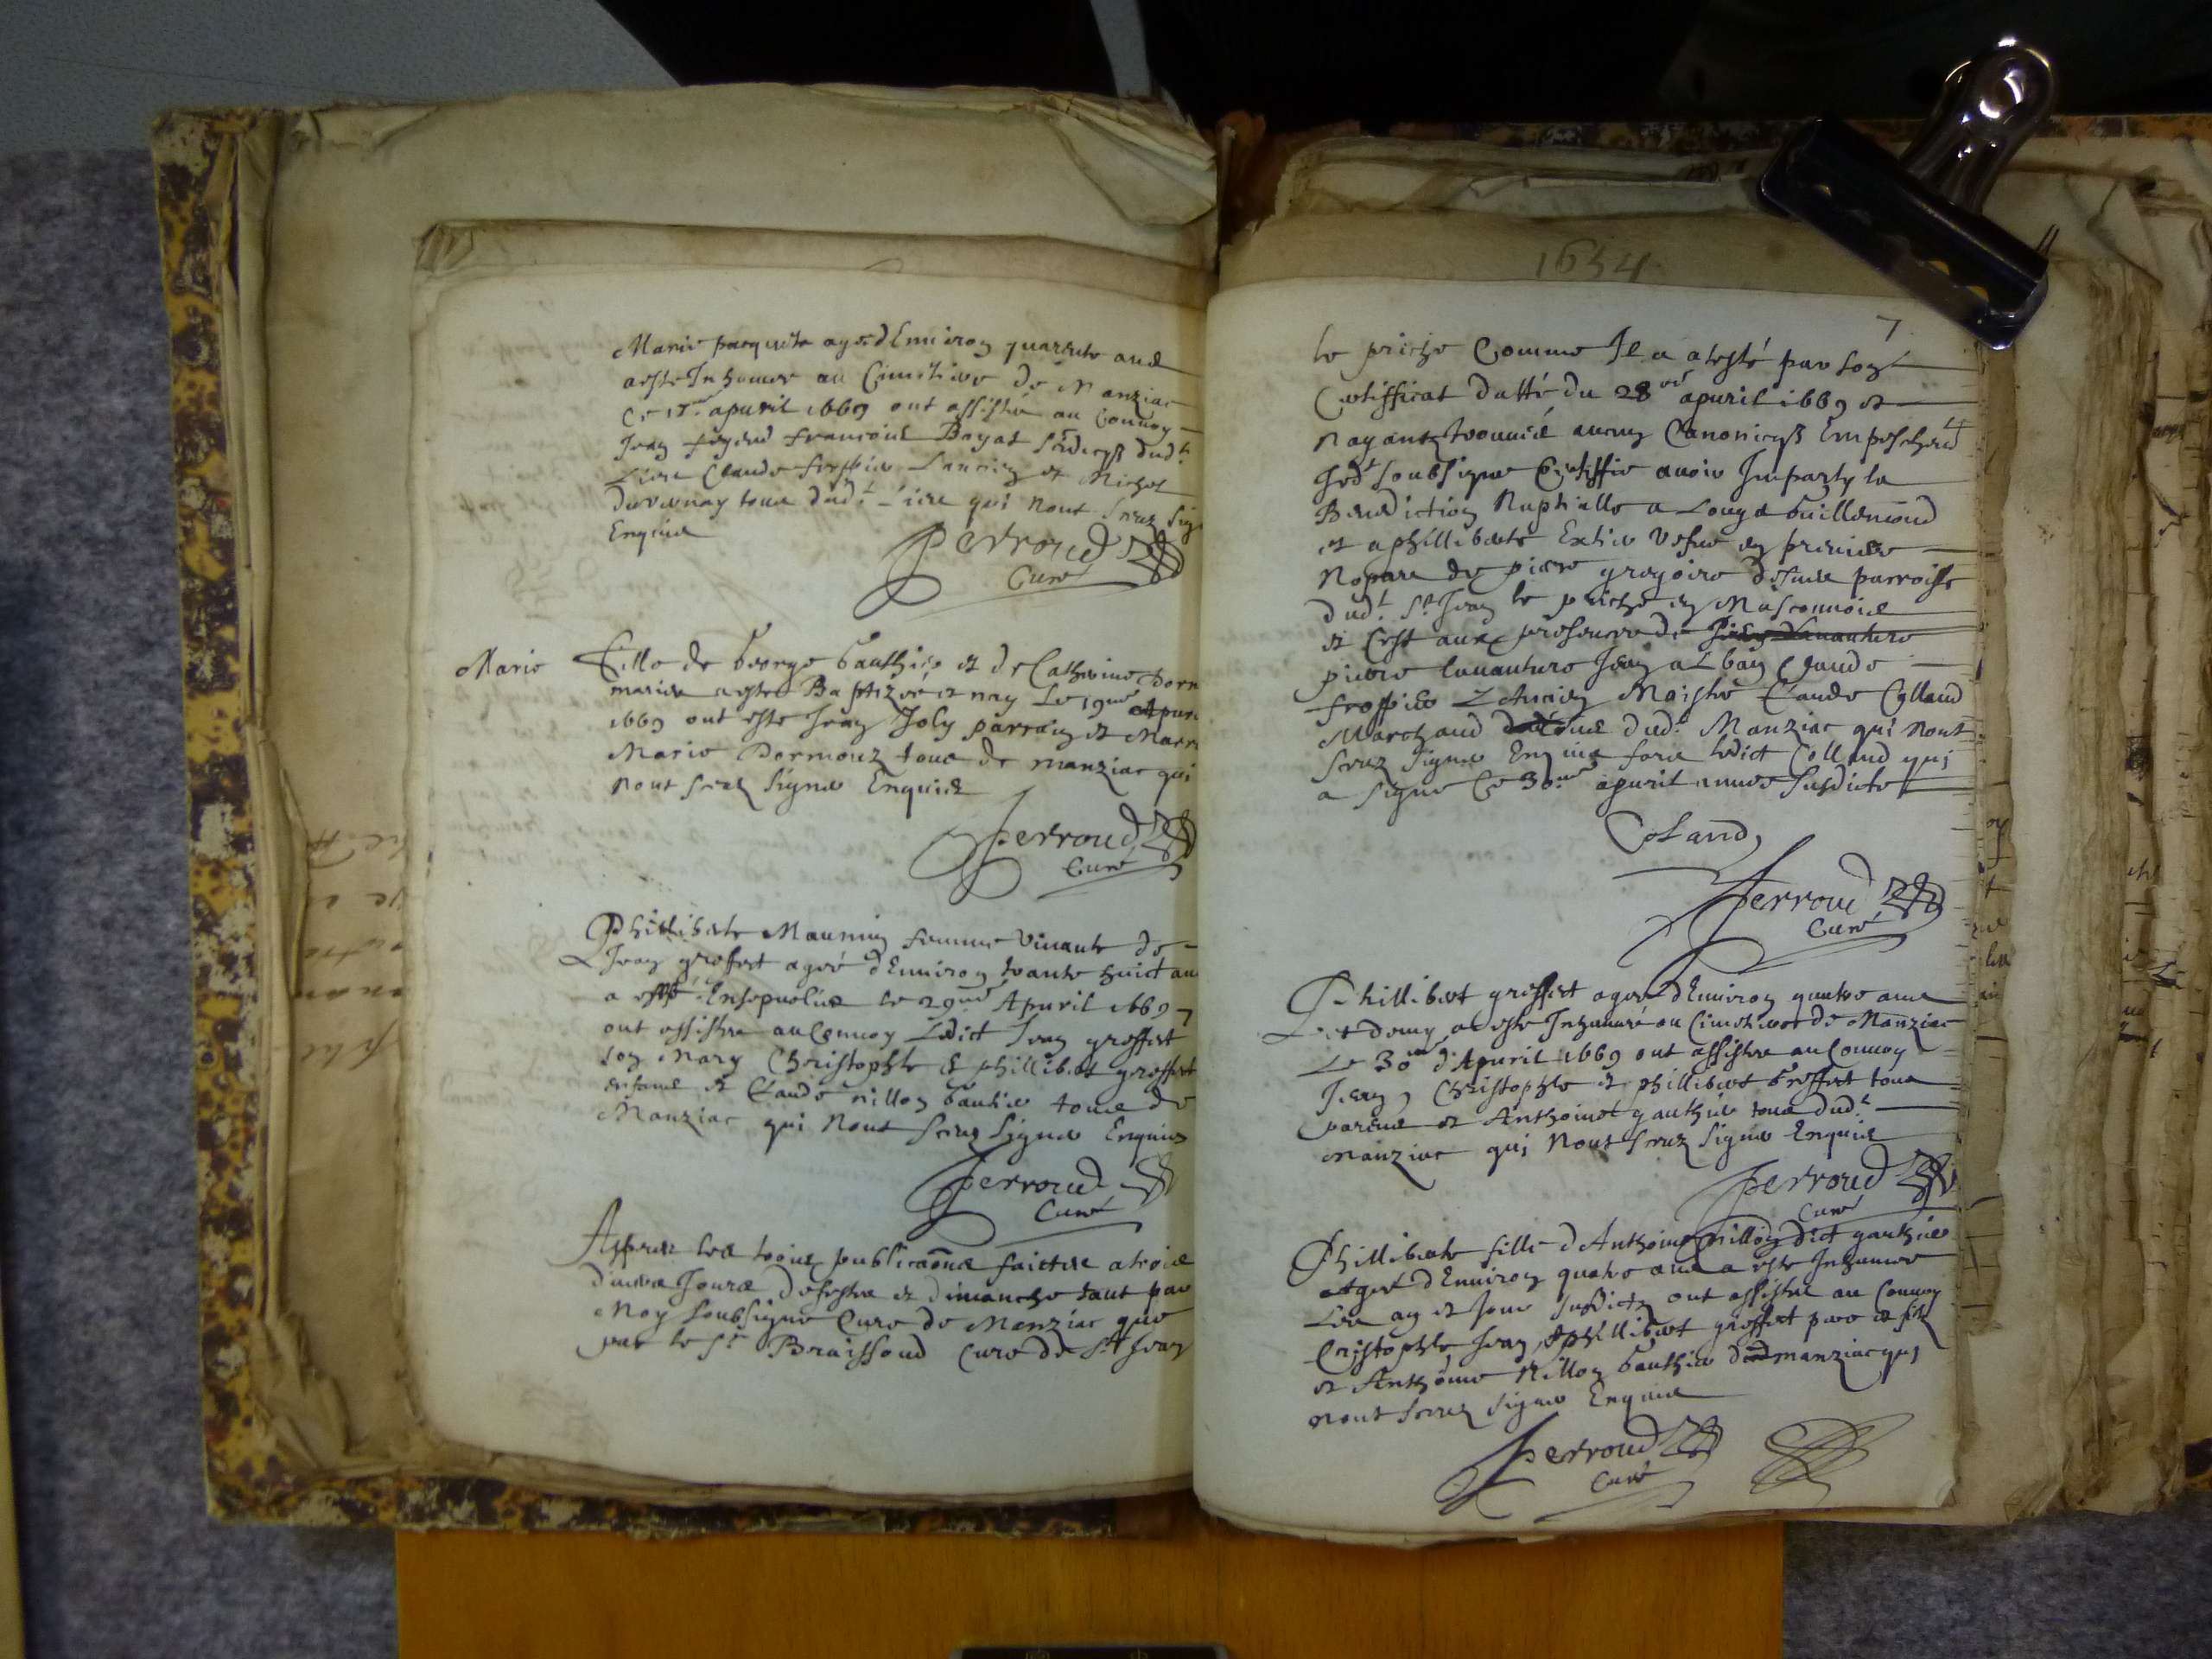 Marie pacquette agee dEnuiron quarente ans
a este Inhumee au Cimetiere de Manziac
apuril 1669 ont assisté au Conuoy
Jean francois Boyat dudt
Lieu Claude froppier Lancien et Michel
duvernay tous dudt lieu qui nont sceu sig
Enquis
Perroud
Curé
Marie Fille de George Gauthier et de Catherine Dorm
mariez a esté Baptizée et nay Le 19me Apur
1669 ont esté Jean Joly parrain et Marr
Marie Dormouz tous de manziac qui
nont sceu signer Enquis
Perroud
Curé
Phillibete Maunin femme viuante de
Jean greffet agee dEnuiron trante huict ans
a esté Ensepuelie le 29me Apuril 1669
ont assisté au Conuoy Ledict Jean greffet
son Mary Christophle et phillibet greffet
enfans et Claude nillon Gautier tous de
Manziac qui Nont sceuz signer Enquis
Perroud
Curé
Appres les trois publicaõns faictes a trois
diuers Jours de festes et dimanche tant par
Moy soubsigné Curé de Manziac que
par le Sr Braissoud curé de St Jean
1654
7
le priche Comme Il a atesté par son
Certifficat datté du 28me apuril 1669 et
Nayantz trouué aucun Canonicqz Empeschent
Jedt soubsigné Certiffie auoir Imparty la
Benediction Nuptialle a Louys Guillemaud
et a phillibete Extier vefue en premiere
Nopces de pierre gregoire de sus parroisse
dudt St Jean le priche en Masconnois
et Cest aux presences de Jean Lauanture
pierre Lauanture Jean Albain Claude
froppier LAncien Maistre Claude Colland
Marchand tous dudt Manziac qui Nont
sceuz signer Enquis fors ledict Colland qui
a signé Ce 30me apuril annee susdicte
Coland
Perroud
Curé
Phillibert greffet agee dEnuiron quatre ans
et demy a esté Inhumé au Cimetiere de Manziac
Le 30me dApuril 1669 ont assisté au Conuoy
Jean, Christophle et phillibet Greffet tous
parens et Anthoinot gauthier tous dudt
Manziac qui Nont sceuz signer Enquis
Perroud
Curé
Phillibete fille dAnthoine nillon dict gauthier
Agee dEnuiron quatre ans a esté Inhumee
Les an et Jour susdictz ont assisté au Conuoy
Cristophle Jean, et phillibet greffet pere et filz
et Anthoine Nillon Gauthier dud manziac qui
nont sceuz signer Enquis
Perroud
Curé